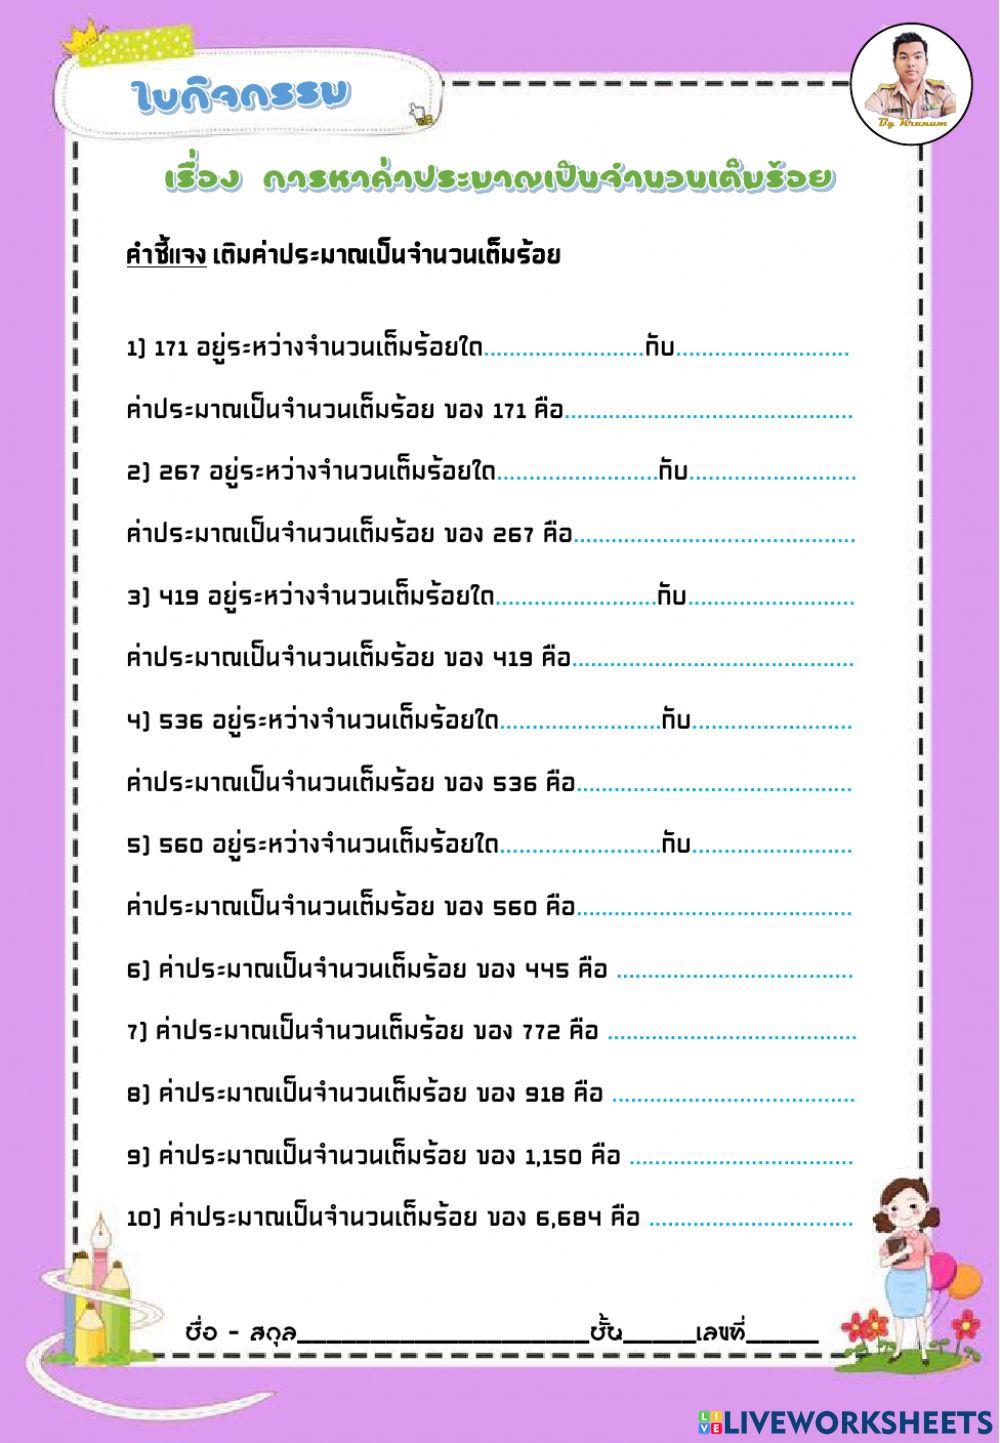 ใบกิจกรรม
By Krunum
เรื่อง การหาค่าประมาณเป็นจำนวนเต็มร้อย
คำชี้แจง เติมค่าประมาณเป็นจำนวนเต็มร้อย
1) 171 อยู่ระหว่างจำนวนเต็มร้อยใด.........................กับ...........................
ค่าประมาณเป็นจำนวนเต็มร้อย ของ 171 คือ.............................................
2) 267 อยู่ระหว่างจำนวนเต็มร้อยใด.........................กับ..........................
ค่าประมาณเป็นจำนวนเต็มร้อย ของ 267 คือ............................................
3) 419 อยู่ระหว่างจำนวนเต็มร้อยใด.........................กับ..........................
ค่าประมาณเป็นจำนวนเต็มร้อย ของ 419 คือ............................................
4) 536 อยู่ระหว่างจำนวนเต็มร้อยใด.........................กับ.........................
ค่าประมาณเป็นจำนวนเต็มร้อย ของ 536 คือ...........................................
5) 560 อยู่ระหว่างจำนวนเต็มร้อยใด.........................กับ.........................
ค่าประมาณเป็นจำนวนเต็มร้อย ของ 560 คือ...........................................
6) ค่าประมาณเป็นจำนวนเต็มร้อย ของ 445 คือ .....................................
7) ค่าประมาณเป็นจำนวนเต็มร้อย ของ 772 คือ .......................................
8) ค่าประมาณเป็นจำนวนเต็มร้อย ของ 918 คือ ......................................
9) ค่าประมาณเป็นจำนวนเต็มร้อย ของ 1,150 คือ ...................................
10) ค่าประมาณเป็นจำนวนเต็มร้อย ของ 6,684 คือ ................................
ชื่อ - สกุล____________________ชั้น_____เลขที่_____
LIVE LIVEWORKSHEETS